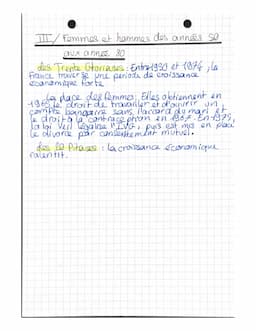 III / Femmes et hommes des années 50
aux années 80
des Trente Glorieuses : Entre 1950 et 1974, la
France traverse une période de croissance
économique forte
La place des femmes : Elles obtiennent en
1965 le droit de travailler et d'ouvrir un
compte bancaire sans l'accord du mari et
le droit à la contraception en 1967. En 1975,
la loi Veil légalise "IVG", puis est mis en place
le divorce par consentement mutuel.
des 20 : la croissance économique
ralentit.